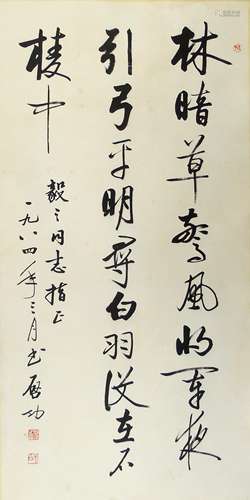 林暗草惊风将军夜
引弓平明寻白羽没在石
棱中
毅之同志指正
一九八四年三月书 启功